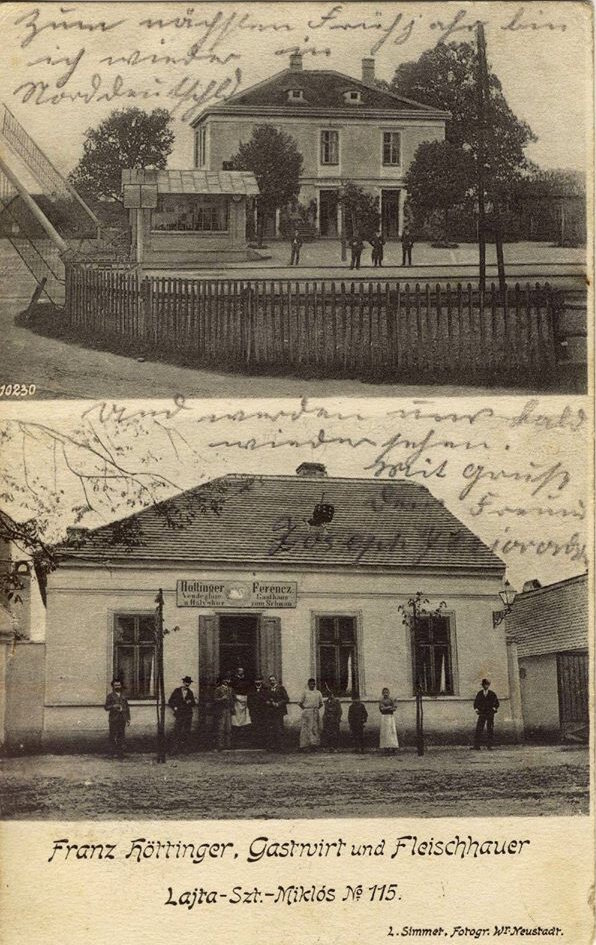 Zum nächsten Frühjahr bin
ich wieder in
Norddeutschld
10230
Und werden uns bald
wieder sehen.
Mit Gruß
dein Freund
Joseph
Hottinger Ferencz
Vendéglője Gasthaus
a Hattyúhoz zum Schwan
Franz Höttinger, Gastwirt und Fleischhauer
Lajta-Szt.-Miklós № 115.
L. Simmet, Fotogr. Wr. Neustadt.